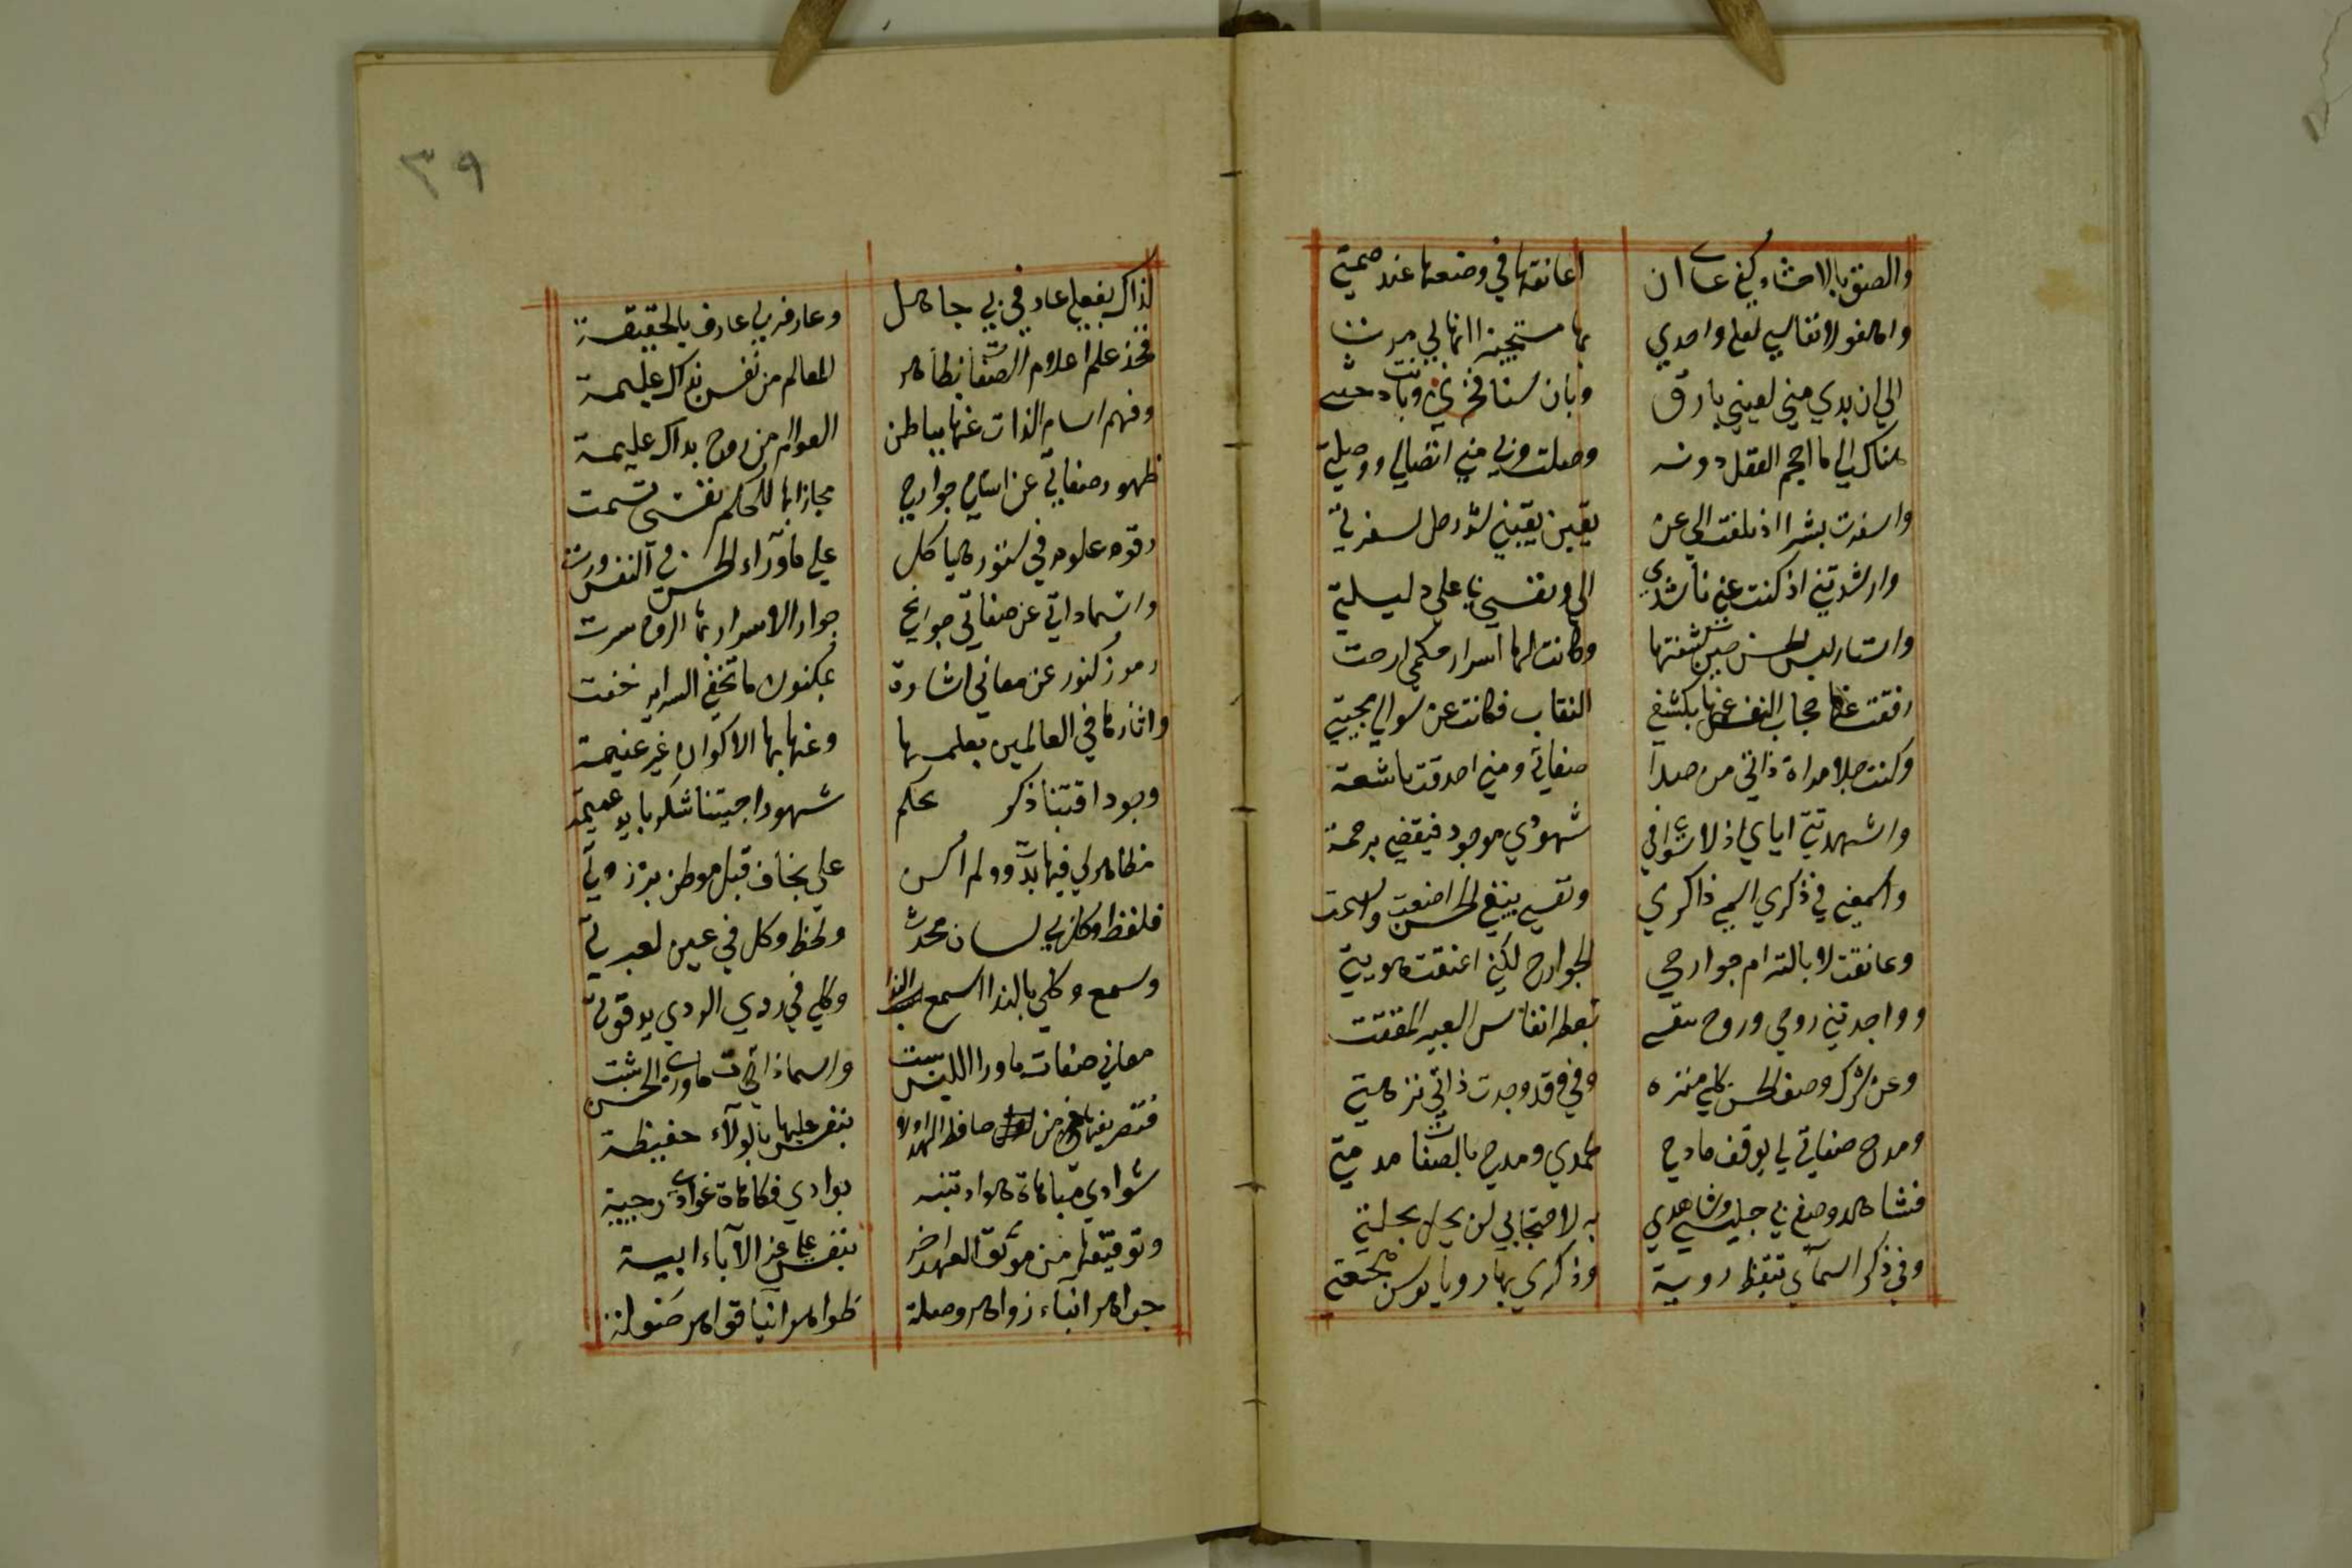 والصق بالاحشاء كفي عساى ان اعانقها في وضعها عند ضمتي
واهفو لانفاسي لعلي واجدي بها مستجيزا انها لي مرت
الي ان بدي مني لعيني بارق وبان سنا فجري وبانت دجنتي
هناك الي ما احجم العقل دونه وصلت وبي مني اتصالي ووصلتي
واسفرت بشرا اذ بلغت الي عن يقين يقيني شد رحل لسفرتي
وارشدتني اذ كنت عني ناشدي الي ونفسي بي علي دليلتي
واستار لبس الحس حين كشفتها وكانت لها اسرار حكمي ارخت
رفعت حجاب النفس عنها بكشفي النقاب فكانت عن سوالي مجيبتي
وكنت جلا مراة ذاتي من صدا صفاتي ومني احدقت باشعة
واشهدتني اياي اذ لا سواي في شهودي موجود فيقضي بزحمة
واسمعني في ذكري اسمي ذاكري ونفسي بنفي الحس اصغت واسمت
وعانقت لا بالتزام جوارحي الجوارح لكني اعتنقت هويتي
وواجدتني روحي وروح تنفسي يعطر انفاس العبير المفتت
وعن شرك وصف الحس كلي منزه وفي وقد وجدت ذاتي نزهتي
ومدح صفاتي بي يوفق مادحي لحمدي ومدحي بالصفات مدمتي
فشاهد وصفي بي جليسي وشاهدي به لاحتجابي لن يحل بحلتي
وفي ذكر اسمآي تيقظ روية وذكري بها رويا توسن هجعتي
٣٩
كذاك بفعلي عارفي بي جاهل وعارفه بي عارف بالحقيقة
فخذ علم اعلام الصفات بظاهر المعالم من نفس بذاك عليمة
وفهم اسام الذات عنها بباطن العوالم من روح بداك عليمة
ظهور صفاتي عن اسامي جوارحي مجازا بها للحكم نفسي تسمت
رقوم علوم في ستور هياكل علي ماورآء الحس في النفس ورت
واسما داتي عن صفاتي جوانحي جواز الاسرار بها الروح سرت
رموز كنوز عن معاني اشارة بمكنون ما تخفي السراير خفت
واثارها في العالمين بعلمها وعنها بها الاكوان غير غنيمة
وجود اقتنا ذكر بحكم شهود اجتنا شكر بايد عميمة
مظاهر لي فيها بدوت ولم اكن علي بخاف قبل موطن برزتي
فلفظ وكلي بي لسان محدث ولحظ وكل في عين لعبرتي
وسمع وكلي بالندا اسمع الندا وكلي في ردي الردي يد قوتي
معاني صفات ماورا اللبس اثبتت واسما ذاتي ماورى الحس بثت
فتصريفها من حافظ العهد اولا بنفس عليها بالولآء حفيظة
شوادي مباهاة هوادي تنبه بوادي فكاهات غوادى رجية
وتوقيفها من موثق العهد اخر بنفس علي عز الآباء ابية
جواهر انباء زواهر وصلة ظواهر انبا قواهر صولة